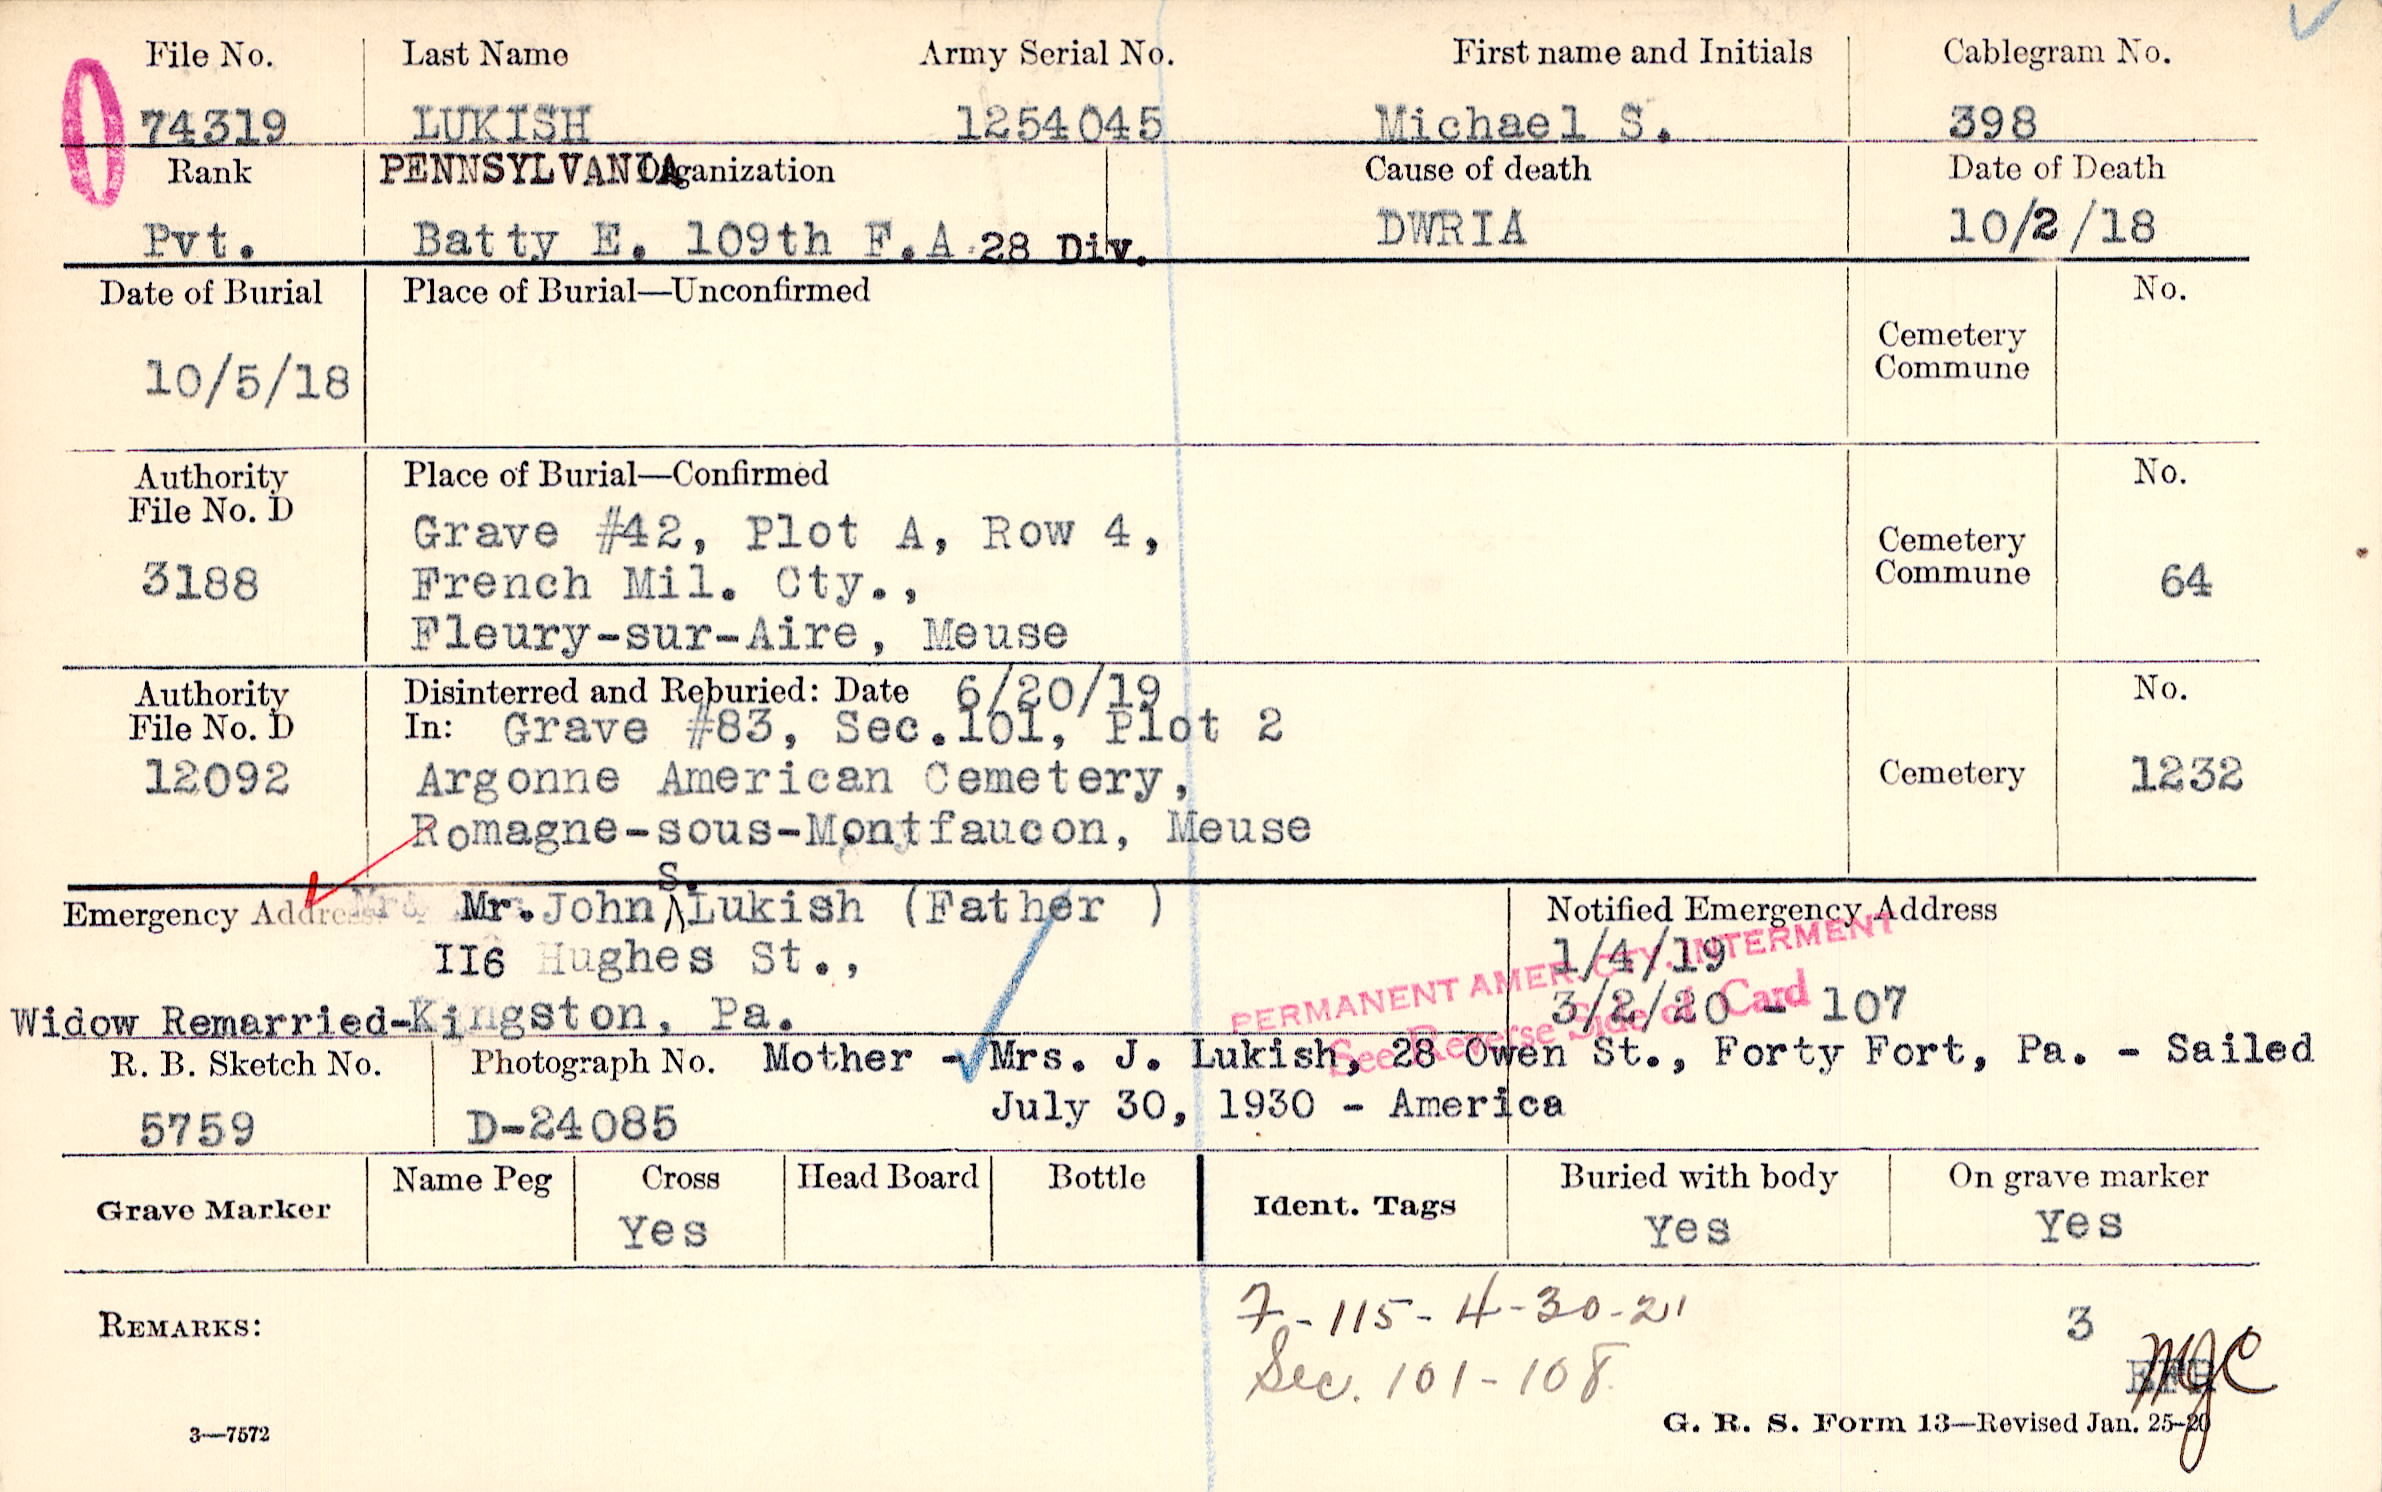 File No. Last Name Army Serial No. First name and Initials Cablegram No.
0
74319 LUKISH 1254045 Michael S. 398
Rank PENNSYLVANIA Organization Cause of death Date of Death
Pvt. Batty E. 109th F.A. 28 Div. DWRIA 10/2/18
Date of Burial Place of Burial—Unconfirmed No.
Cemetery
Commune
10/5/18
Authority Place of Burial—Confirmed No.
File No. D
Grave #42, Plot A, Row 4,
Cemetery
Commune
3188 French Mil. Cty., 64
Fleury-sur-Aire, Meuse
Authority Disinterred and Reburied: Date 6/20/19 No.
File No. D In: Grave #83, Sec.101, Plot 2
12092 Argonne American Cemetery, Cemetery 1232
Romagne-sous-Montfaucon, Meuse
Emergency Address Mr. John S. Lukish (Father ) Notified Emergency Address
116 Hughes St., 1/4/19
PERMANENT AMER. CTY. INTERMENT
See Reverse Side of Card
Widow Remarried-Kingston, Pa. 3/2/20 - 107
R. B. Sketch No. Photograph No. Mother - Mrs. J. Lukish, 28 Owen St., Forty Fort, Pa. - Sailed
July 30, 1930 - America
5759 D-24085
Grave Marker Name Peg Cross Head Board Bottle Ident. Tags Buried with body On grave marker
Yes Yes Yes
7-115-4-30-21
REMARKS: 3
Sec. 101-108
MJC
3—7572 G. R. S. Form 13—Revised Jan. 25-20